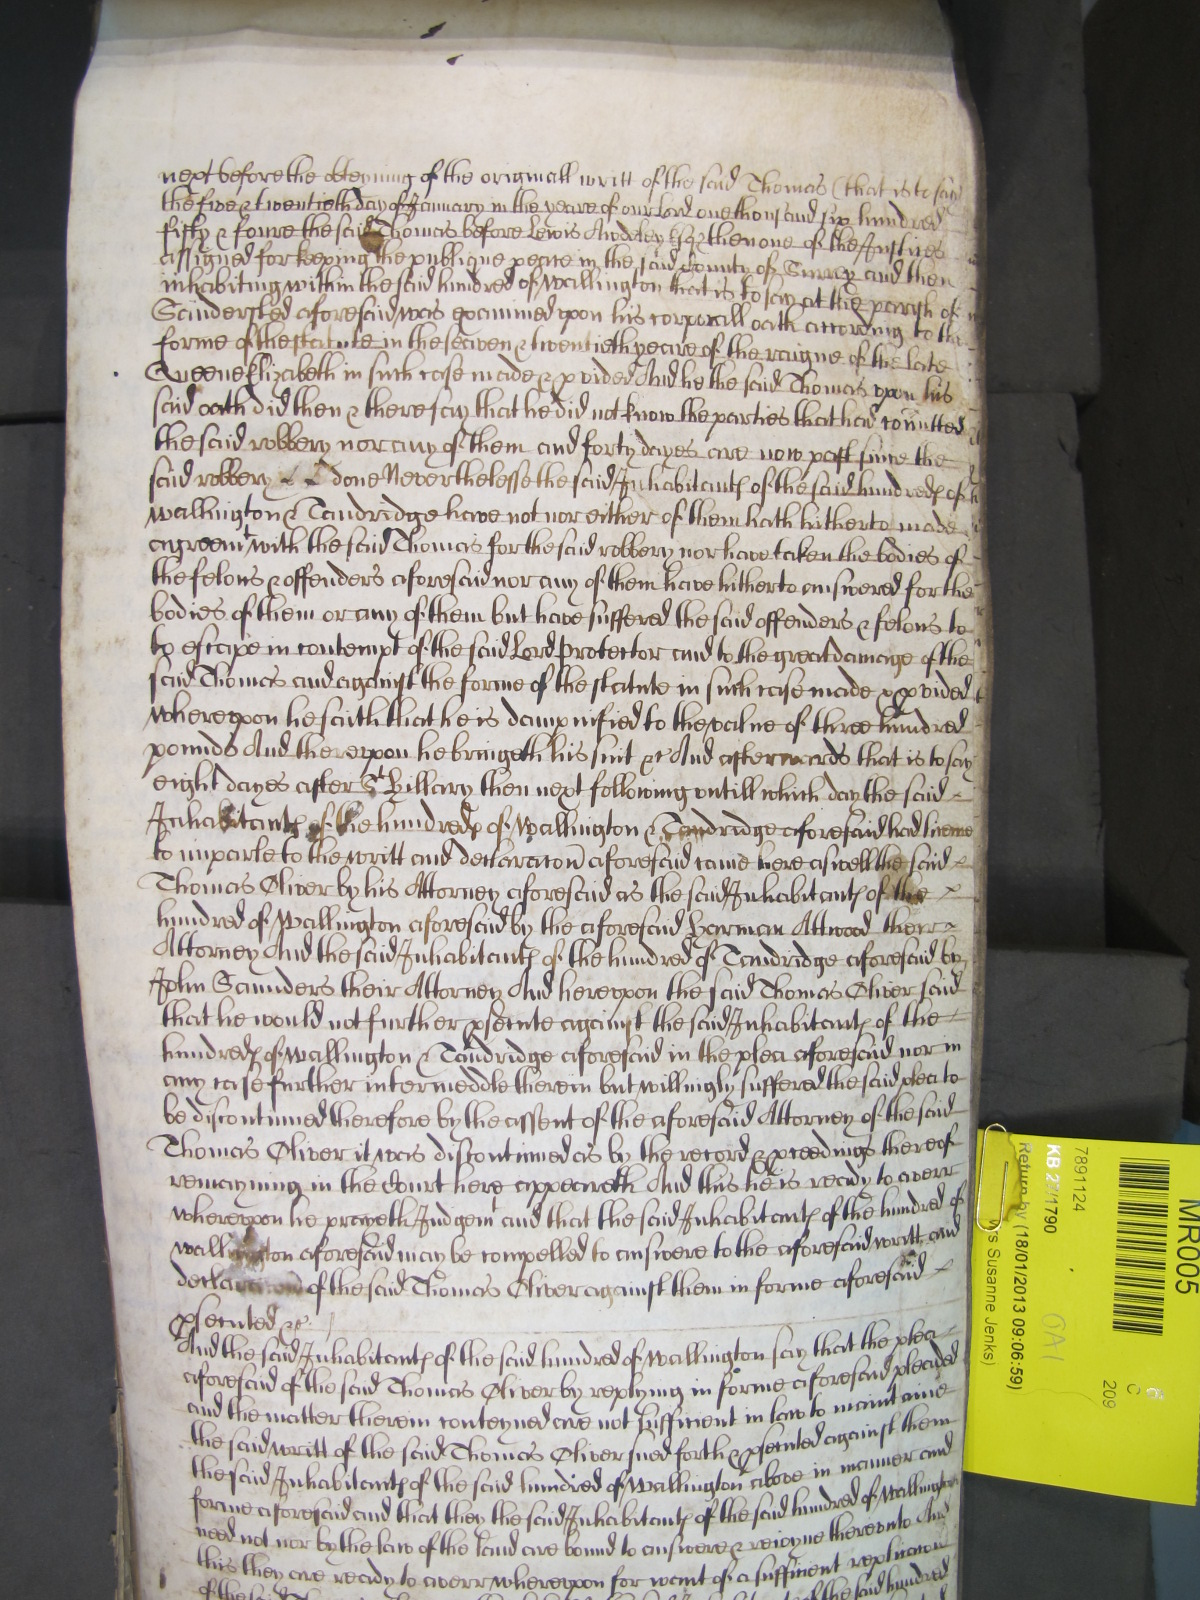 next before the obteyning of the originall writt of the said Thomas (that is to say
the five & twentieth day of January in the yeare of our Lord one thousand six hundred
fifty & foure the said Thomas before Lewis Awdeley Esqr then one of the Justices
assigned for keeping the publique peace in the said County of Surrey and then
inhabiting within the said hundred of Wallington that is to say at the parish of
Sandersted aforesaid was examined upon his corporall oath according to the
forme of the statute in the seaven & twentieth yeare of the raigne of the late
Queene Elizabeth in such case made & pvided And he the said Thomas upon his
said oath did then & there say that he did not know the parties that had comitted
the said robbery nor any of them and forty dayes are now past since the
said robbery done Neverthelesse the said Inhabitants of the said hundreds of
Wallington & Tandridge have not nor either of them hath hitherto made
agreemt with the said Thomas for the said robbery nor have taken the bodies of
the felons & offenders aforesaid nor any of them have hitherto answered for the
bodies of them or any of them but have suffered the said offenders & felons to
to escape in contempt of the said Lord Protector and to the great damage of the
said Thomas and against the forme of the statute in such case made & pvided
whereupon he saith that he is dampnified to the value of three hundred
pounds And thereupon he bringeth his suit &c And afterwards that is to say
eight dayes after St Hillary then next following untill which day the said
Inhabitants of the hundreds of Wallington & Tandridge aforesaid had licence
to imparle to the writt and declaracon aforesaid came here aswell the said
Thomas Oliver by his Attorney aforesaid as the said Inhabitants of the
hundred of Wallington aforesaid by the aforesaid Harman Attwood their
Attorney And the said Inhabitants of the hundred of Tandridge aforesaid by
John Saunders their Attorney And hereupon the said Thomas Oliver said
that he would not further psecute against the said Inhabitants of the
hundreds of Wallington & Tandridge aforesaid in the plea aforesaid nor in
any case further intermeddle therein but willingly suffered the said plea to
be discontinued therefore by the assent of the aforesaid Attorney of the said
Thomas Oliver it was discontinued as by the record & pceedings thereof
remayning in the Court here appeareth And this he is ready to averr
whereupon he prayeth Judgemt and that the said Inhabitants of the hundred of
Wallington aforesaid may be compelled to answere to the aforesaid writt and
declaracon of the said Thomas Oliver against them in forme aforesaid
psecuted &c
And the said Inhabitants of the said hundred of Wallington say that the plea
aforesaid of the said Thomas Oliver by replying in forme aforesaid pleaded
and the matter therein conteyned are not sufficient in law to maintaine
the said writt of the said Thomas Oliver sued forth & psecuted against them
the said Inhabitants of the said hundred of Wallington above in manner and
forme aforesaid and that they the said Inhabitants of the said hundred of Wallington
need not nor by the law of the land are bound to answere & rejoyne thereunto And
this they are ready to averr whereupon for want of a sufficient replicacon
of the said
the said hundred
MR005
7891124
KB 27/1790
Return by (18/01/2013 09:06:59)
rs Susanne Jenks)
OA1
C
209